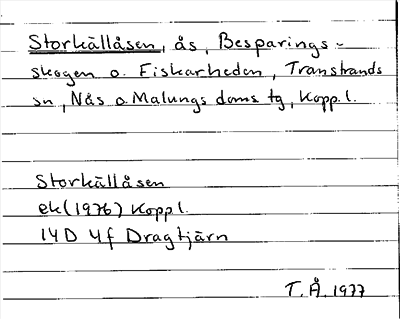 Storkällåsen, ås, Besparings-
skogen o. Fiskarheden, Transtrands
sn, Nås o Malungs doms tg, Kopp. l.
Storkällåsen
ek (1976) Kopp l.
14D 4f Dragtjärn
T. Å. 1977